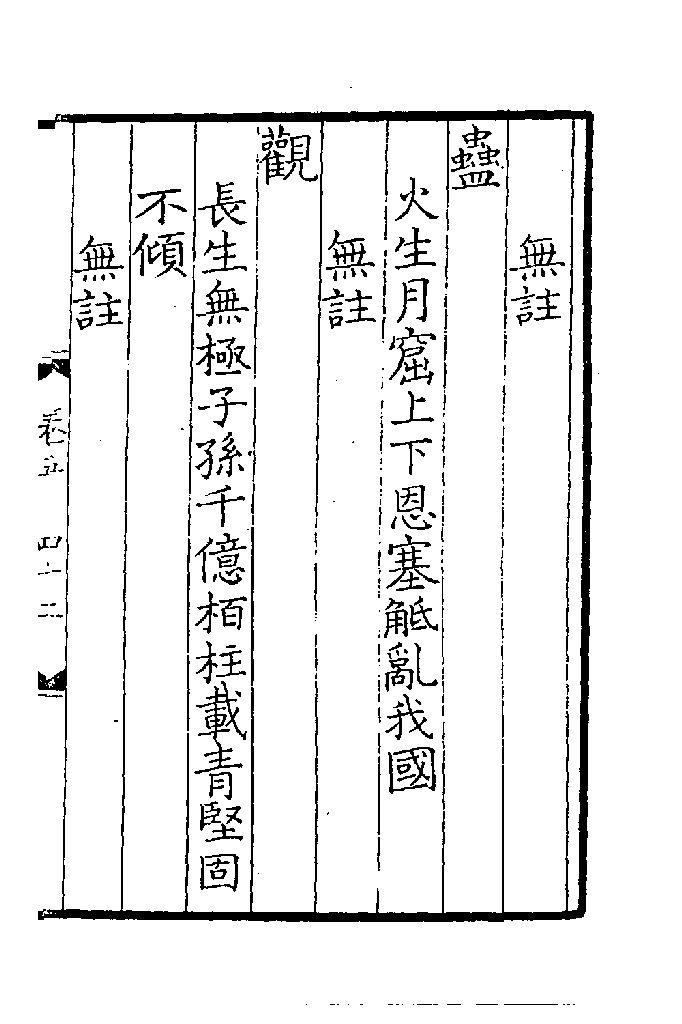 無註
蠱
火生月窟上下恩塞觝亂我國
無註
觀
長生無極子孫千億栢柱載青堅固
不傾
無註
卷五 四十二